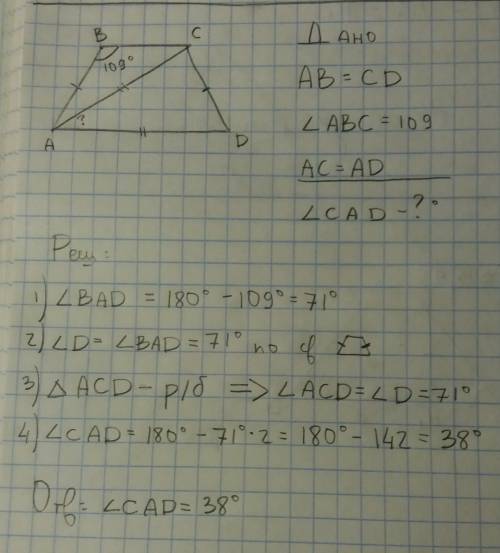 B
C
109°
?
A
D
Дано
AB = CD
∠ABC = 109
AC = AD
∠CAD - ?°
Реш:
1) ∠BAD = 180° - 109° = 71°
2) ∠D = ∠BAD = 71° по св
3) △ACD - р/б => ∠ACD = ∠D = 71°
4) ∠CAD = 180° - 71°·2 = 180° - 142 = 38°
Отв: ∠CAD = 38°